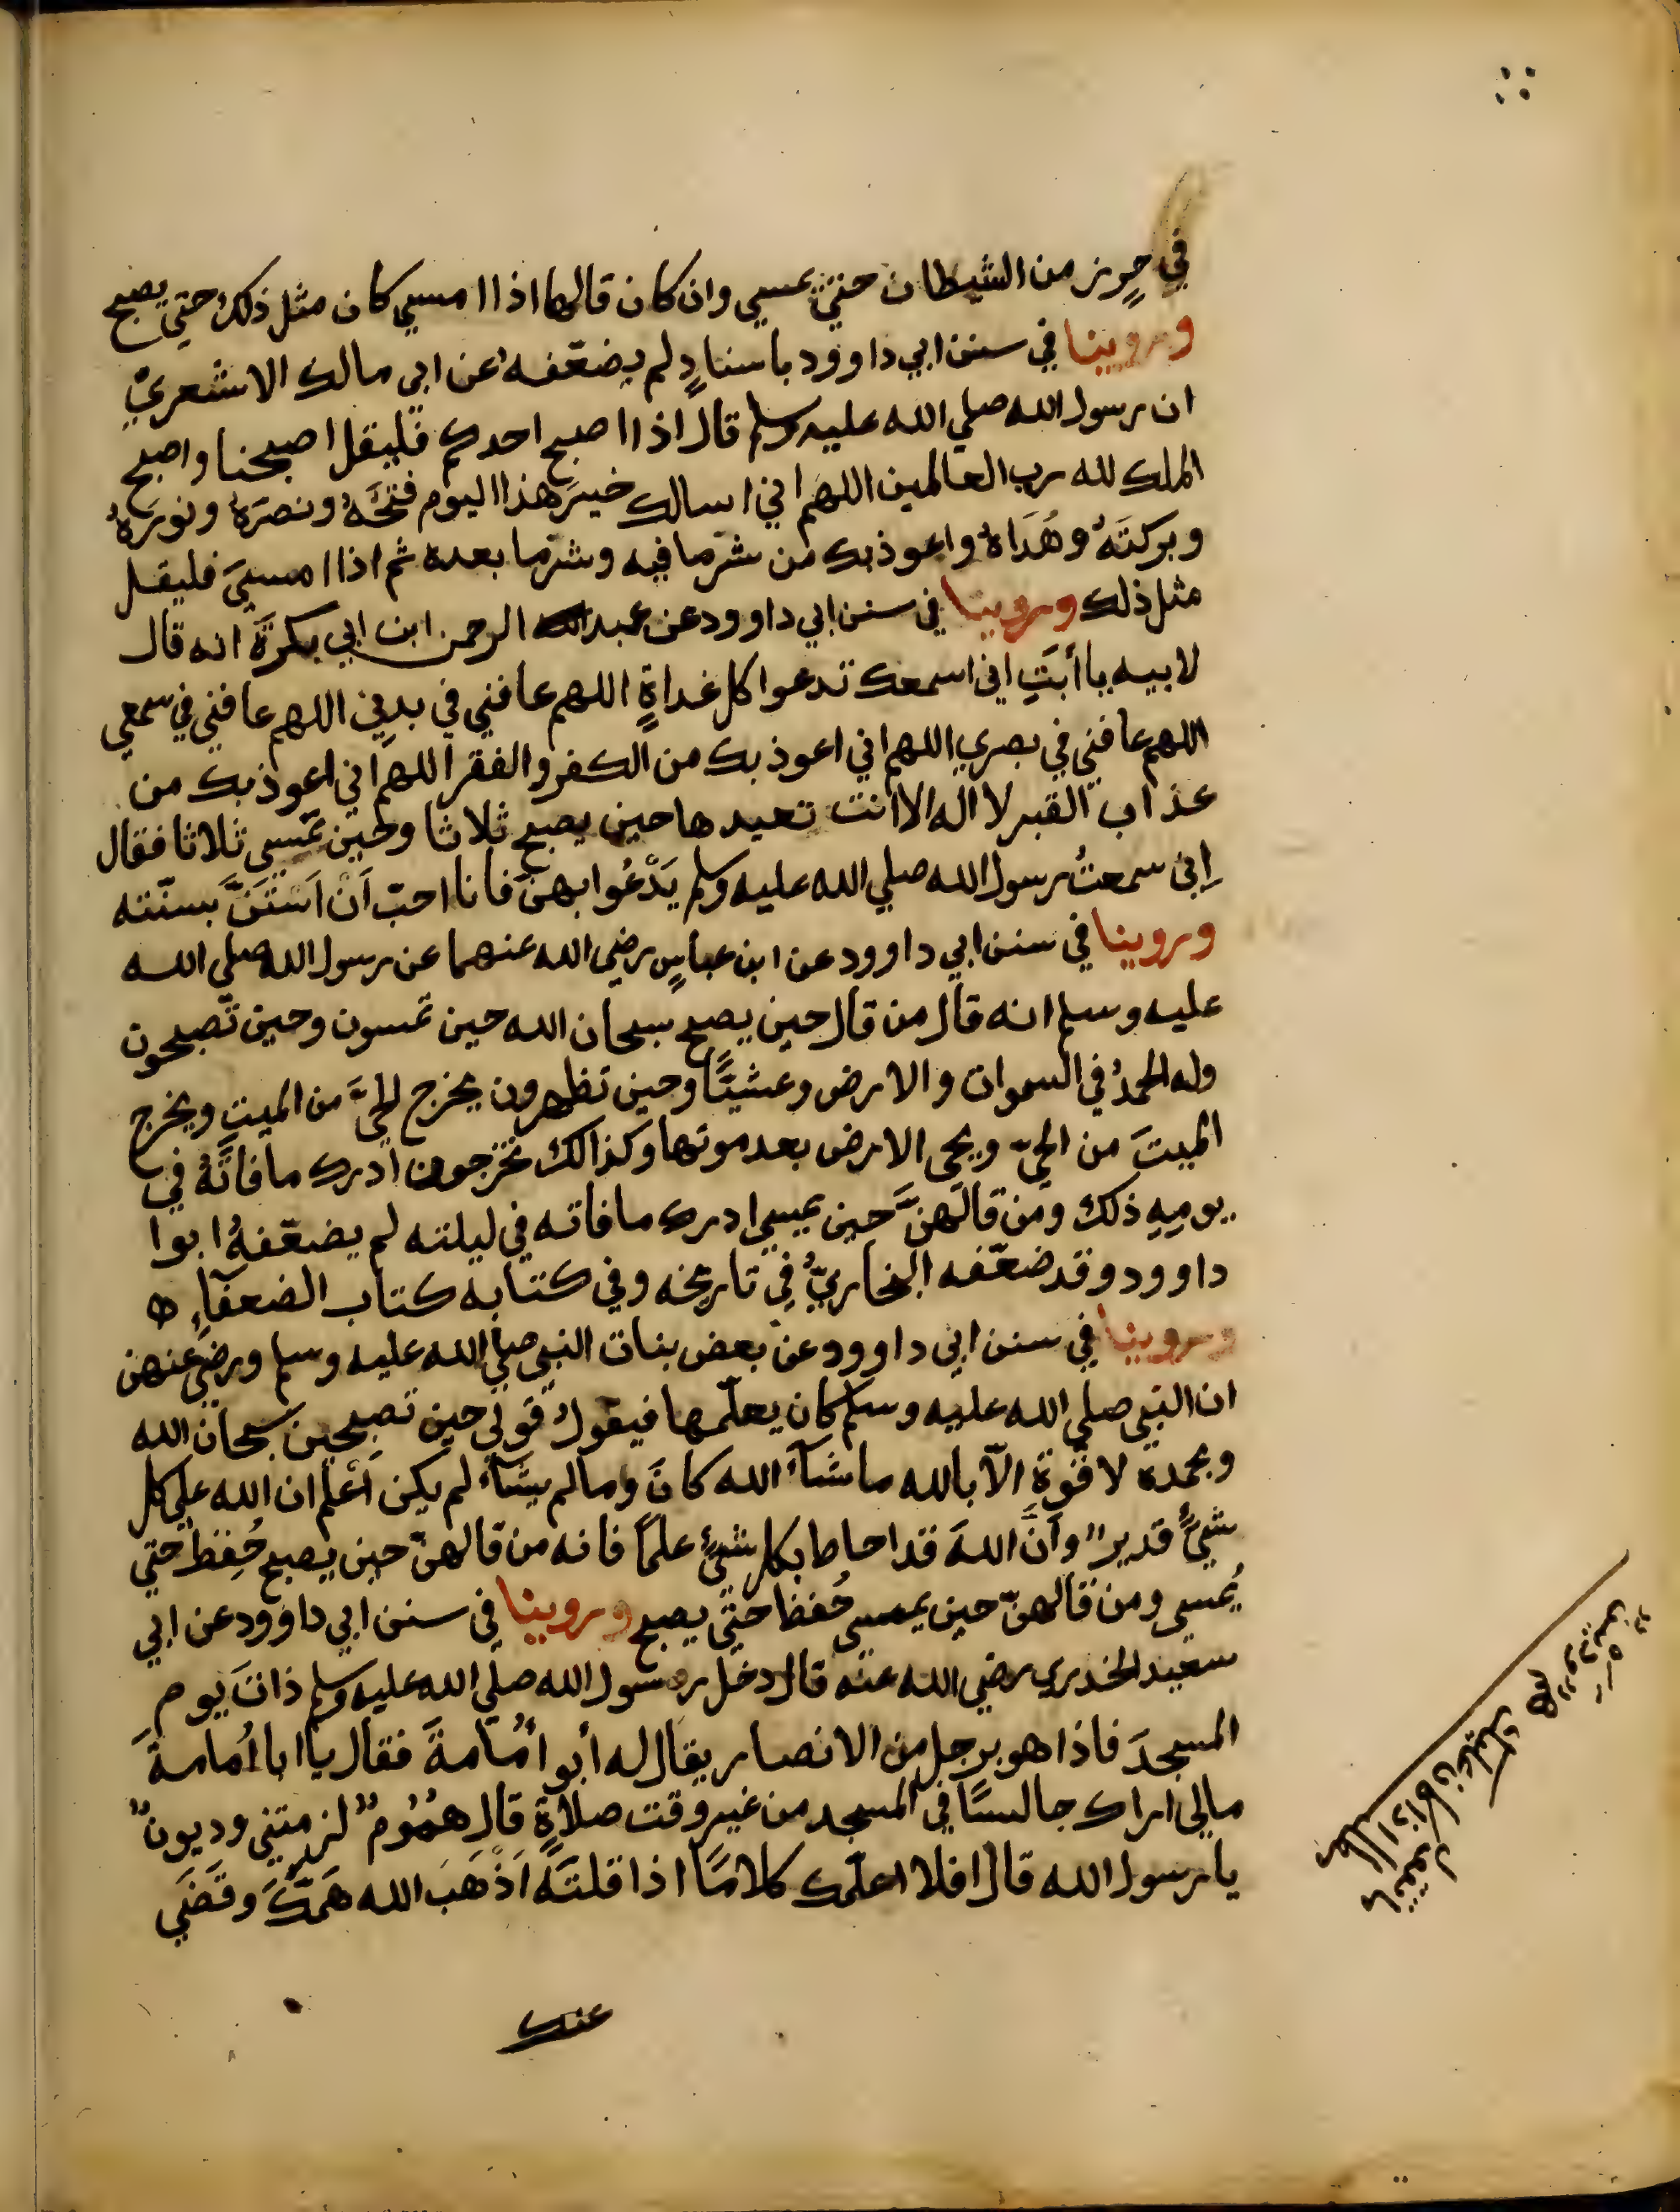 في حِرز من الشيطان حتي يمسي وان كان قالها اذا امسي كان مثل ذلك حتي يصبح
وروينا في سنن ابي داوود باسنادٍ لم يضعّفه عن ابي مالك الاشعريّ
ان رسول الله صلي الله عليه وسلم قال اذا اصبح احدكم فليقل اصبحنا واصبح
الملك لله رب العالمين اللهم اني اسالك خيرَ هذا اليوم فتحَهُ ونصرَهُ ونورَهُ
وبركتَهُ وهُدَاهُ واعوذ بك من شرّما فيه وشرّما بعده ثم اذا امسيَ فليقل
مثل ذلك وروينا في سنن ابي داوود عن عبد الرحمن ابن ابي بكرَةَ انه قال
لابيه يا أبَتِ اني اسمعك تدعوا كل غداةٍ اللهم عافني في بدني اللهم عافني في سمعي
اللهم عافني في بصري اللهم اني اعوذ بك من الكفر والفقر اللهم اني اعوذ بك من
عذاب القبر لا اله الا انت تعيدها حين يصبح ثلاثا وحين تمسي ثلاثا فقال
اِني سمعتُ رسول الله صلي الله عليه وسلم يَدْعُوا بهنّ فانا احبّ اَنْ اَسْتَنَّ بسنّته
وروينا في سنن ابي داوود عن ابن عباسٍ رضي الله عنهما عن رسول الله صلي الله
عليه وسلم انه قال من قال حين يصبح سبحان الله حين تمسون وحين تصبحون
وله الحمدُ في السموات والارض وعشيّاً وحين تظهرون يخرج الحيَّ من الميت ويخرج
الميتَ من الحيّ ويحي الارض بعد موتها وكذالك تخرجون ادرك ما فاتَهُ في
يومِهِ ذلك ومن قالَهنَّ حين يمسي ادرك ما فاته في ليلته لم يضعّفهُ ابوا
داوود وقد ضعّفه البخاريّ في تاريخه وفي كتابه كتاب الضعفآءِ ه
وروينا في سنن ابي داوود عن بعض بنات النبي صلي الله عليه وسلم ورضي عنهن
ان النبي صلي الله عليه وسلم كان يعلّمها فيقول قولي حين تصبحين سبحان الله
وبحمده لا قوة الّا بالله ما شآءَ الله كانَ وما لم يشآء لم يكن اَعْلم ان الله علي كل
شيءٍ قديرٌ وانَّ اللهَ قد احاط بكل شيءٍ علماً فانه من قالهنّ حين يصبح حُفِظَ حتي
يُمسي ومن قالهنّ حين يمسي حُفظ حتي يصبح وروينا في سنن ابي داوود عن ابي
سعيد الخدري رضي الله عنه قال دخل رسول الله صلي الله عليه وسلم ذاتَ يوم
المسجدَ فاذا هو برجلٍ من الانصار يقال له أبو أُمَامةَ فقال يا ابا اُمامةَ
مالي اراك جالسًا في المسجد من غير وقت صلاةٍ قال هُمُوُمٌ لزمتني وديونٌ
يا رسول الله قال افلا اعلّمك كلامًا اذا قلتَهُ اَذْهَبَ الله هَمّكَ وقَضَي
عنك